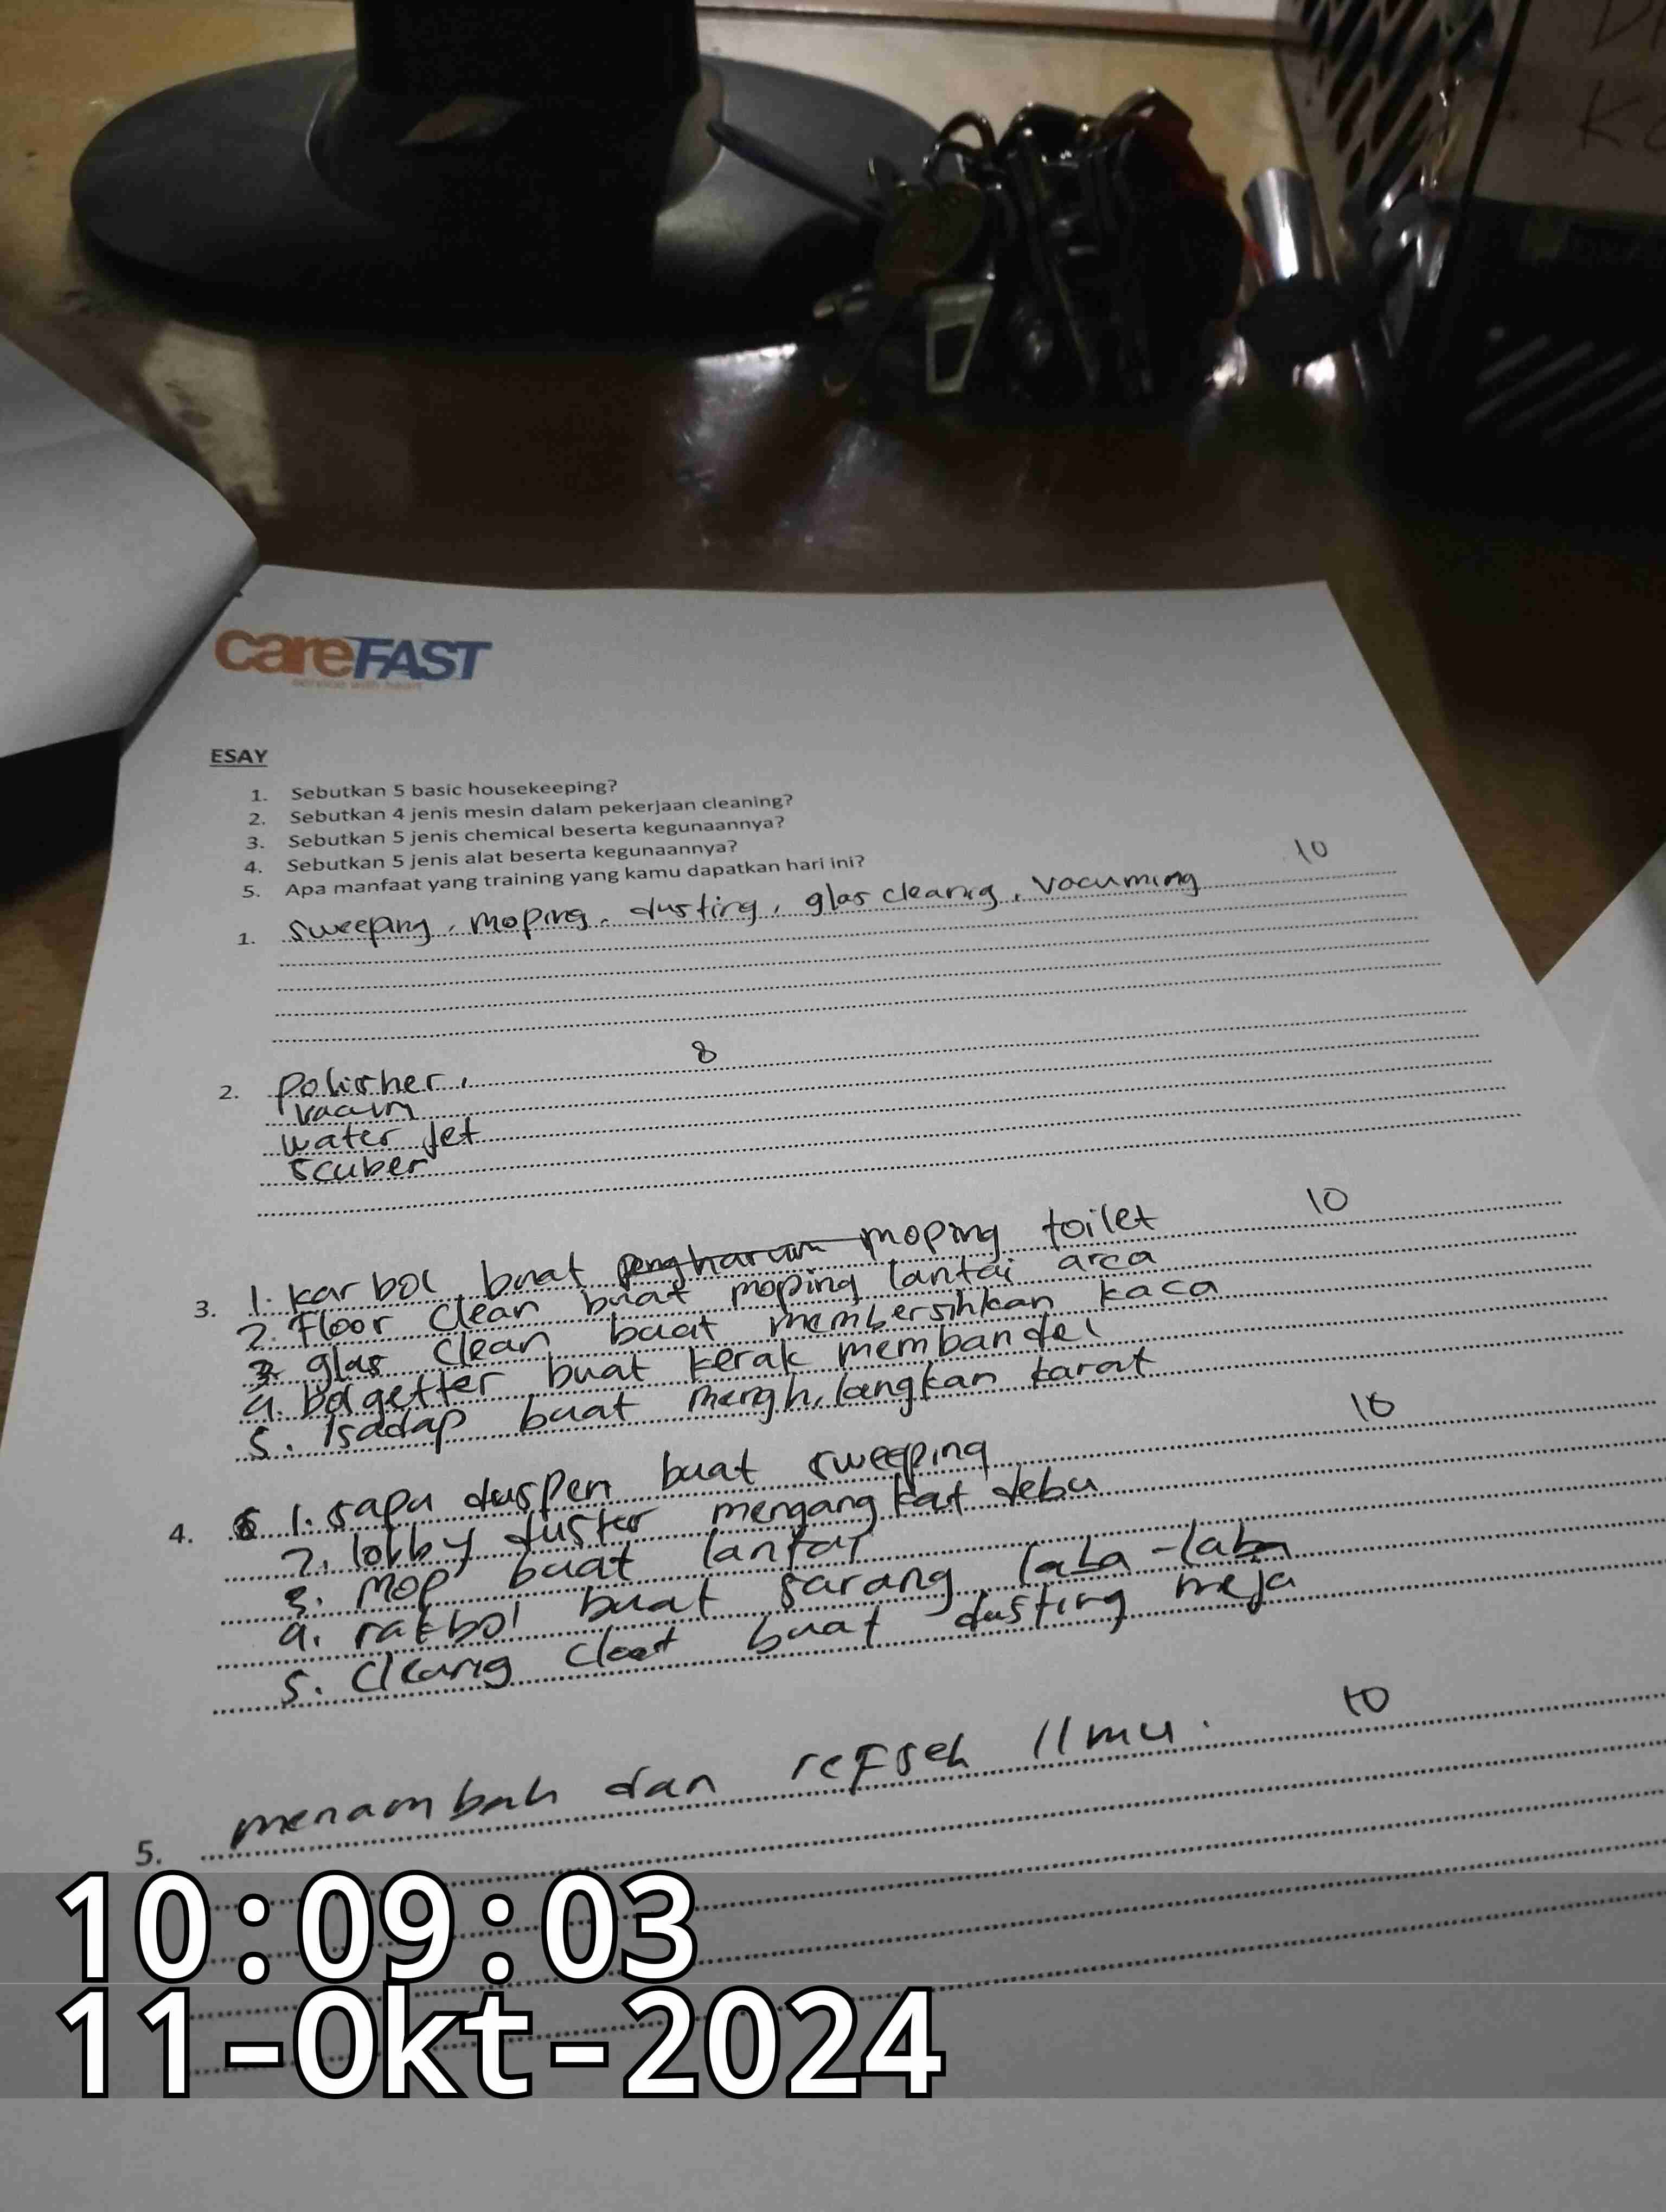 careFAST
service with heart
ESAY
1. Sebutkan 5 basic housekeeping?
2. Sebutkan 4 jenis mesin dalam pekerjaan cleaning?
3. Sebutkan 5 jenis chemical beserta kegunaannya?
4. Sebutkan 5 jenis alat beserta kegunaannya?
5. Apa manfaat yang training yang kamu dapatkan hari ini?
10
1. sweeping, moping. dusting, glas cleanig, vacuming
8
2. polisher,
vacum
water jet
scuber
10
3. 1. karbol buat pengharum moping toilet
2. Floor clean buat moping lantai area
3. glas clean buat membersihkan kaca
4. bolgetter buat kerak membandel
5. Isadap buat menghilangkan karat
10
4. 1. sapu duspen buat sweeping
2. lobby duster mengangkat debu
3. Mop buat lantai
4. rakbol buat sarang laba-laba
5. Cleanig cloot buat dusting meja
10
5. menambah dan refseh Ilmu.
10:09:03
11-Okt-2024